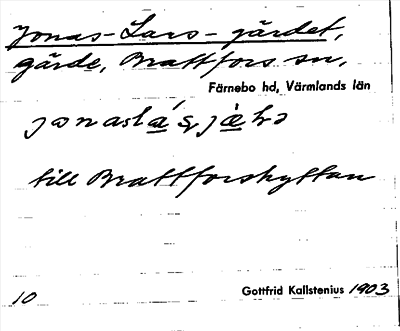 Jonas-Lars-gärdet,
gärde, Brattfors sn,
Färnebo hd, Värmlands län
till Brattforshyttan
Gottfrid Kallstenius 1903
10